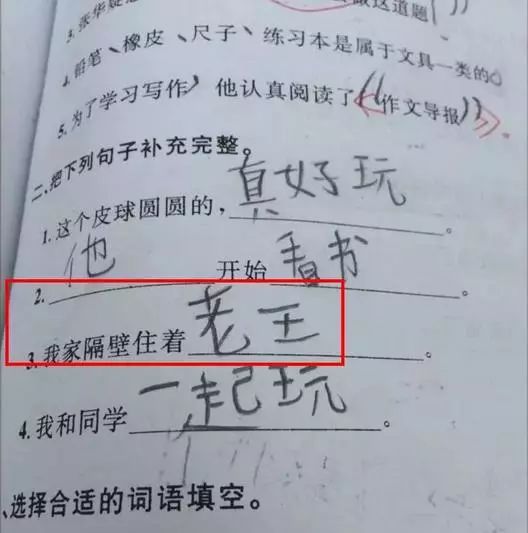 3.张华疑惑 做这道题
4.铅笔、橡皮、尺子、练习本是属于文具一类的。
5.为了学习写作，他认真阅读了《作文导报》。
二、把下列句子补充完整。
1.这个皮球圆圆的,真好玩。
2.他开始看书。
3.我家隔壁住着老王。
4.我和同学一起玩。
、选择合适的词语填空。